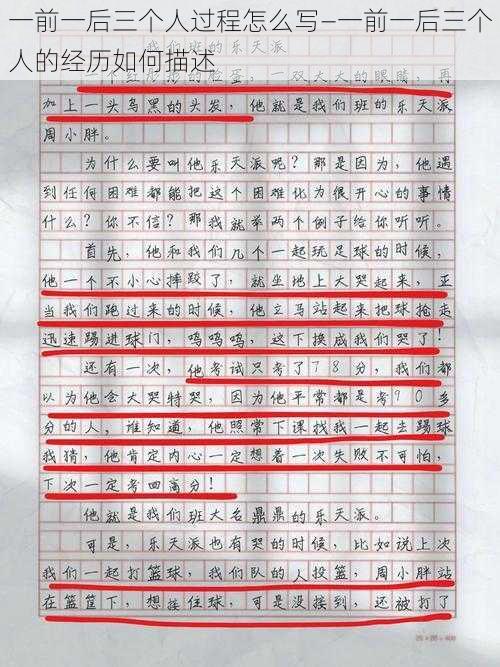 一前一后三个人过程怎么写–一前一后三个
人的经历如何描述
们班的乐天派
的脸蛋，一双大大的眼睛，再
加上一头乌黑的头发，他就是我们班的乐天派
周小胖。
为什么要叫他乐天派呢？那是因为，他遇
到任何困难都能把这个困难化为很开心的事情
什么？你不信？那我就举两个例子给你听听。
首先，他和我们几个一起玩足球的时候，
他一个不小心摔跤了，就坐地上大哭起来，正
当我们跑过来的时候，他立马站起来把球抢走
迅速踢进球门，呜呜呜，这下换成我们哭了！
还有一次，他考试只考了78分，我们都
以为他会大哭特哭，因为他平常都是考90多
分的人，谁知道，他照常下课找我一起去踢球
我猜，他肯定内心一定想着一次失败不可怕，
下次一定考回高分！
他就是我们班大名鼎鼎的乐天派。
可是，乐天派也有哭的时候，比如说上次
我们一起打篮球，我们队的人投篮，周小胖站
在篮筐下，想接住球，可是没接到，还被打了